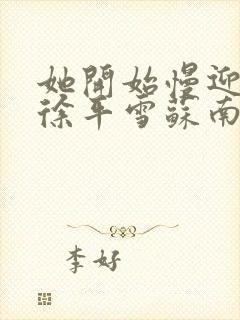 她開始慢迎
徐平雪蘇南
李好